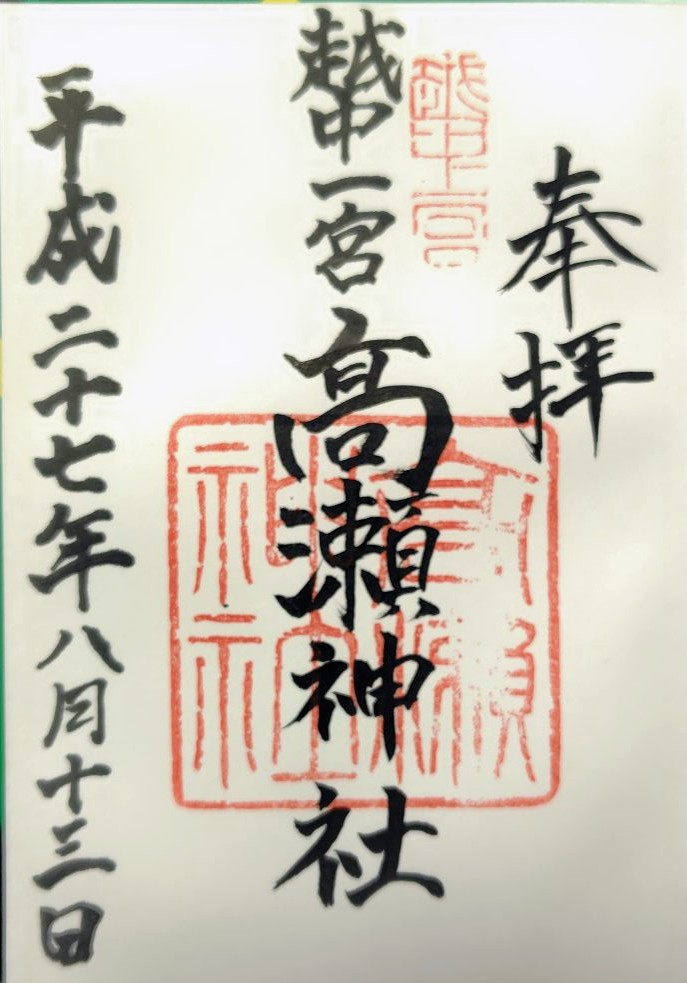 奉拝
越中一宮
越中一宮 高瀬神社
高瀬神社
平成二十七年八月十三日